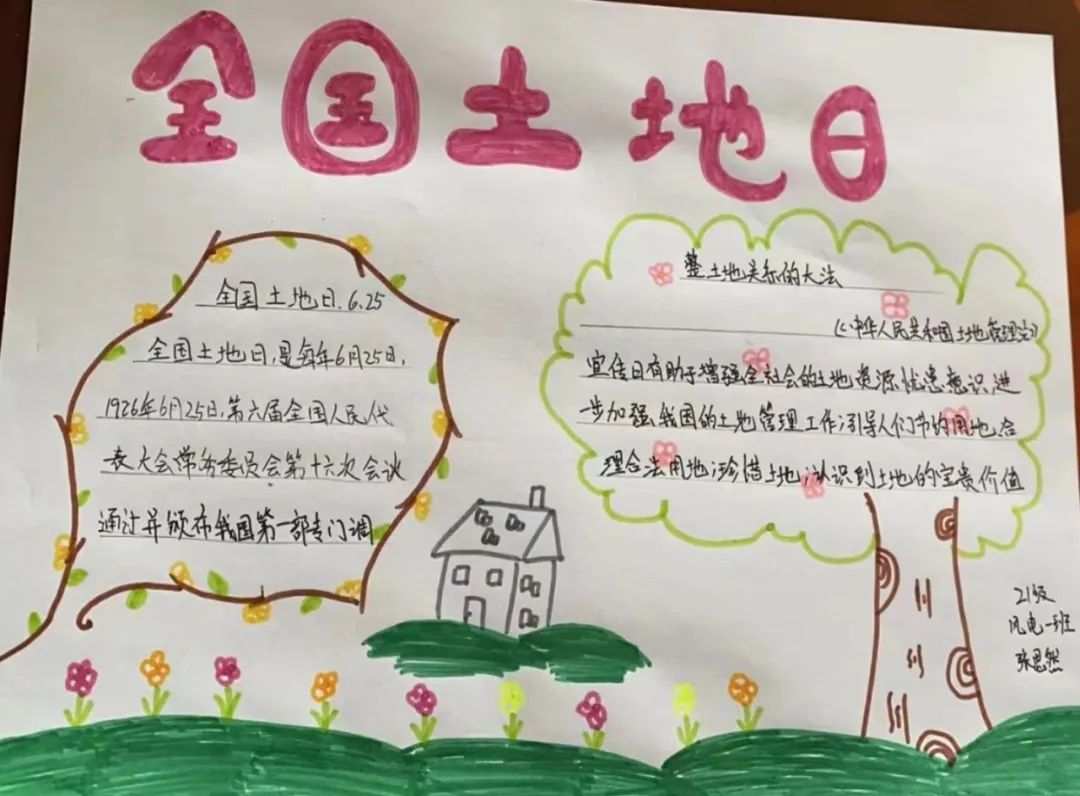 全国土地日
全国土地日.6.25
全国土地日,是每年6月25日,
1926年6月25日,第六届全国人民代
表大会常务委员会第十六次会议
通过并颁布我国第一部专门调
整土地关系的大法
《中华人民共和国土地管理法》
宣传日有助于增强全社会的土地资源忧患意识,进
一步加强我国的土地管理工作;引导人们节约用地,合
理合法用地;珍惜土地;认识到土地的宝贵价值
21级
风电一班
张思然